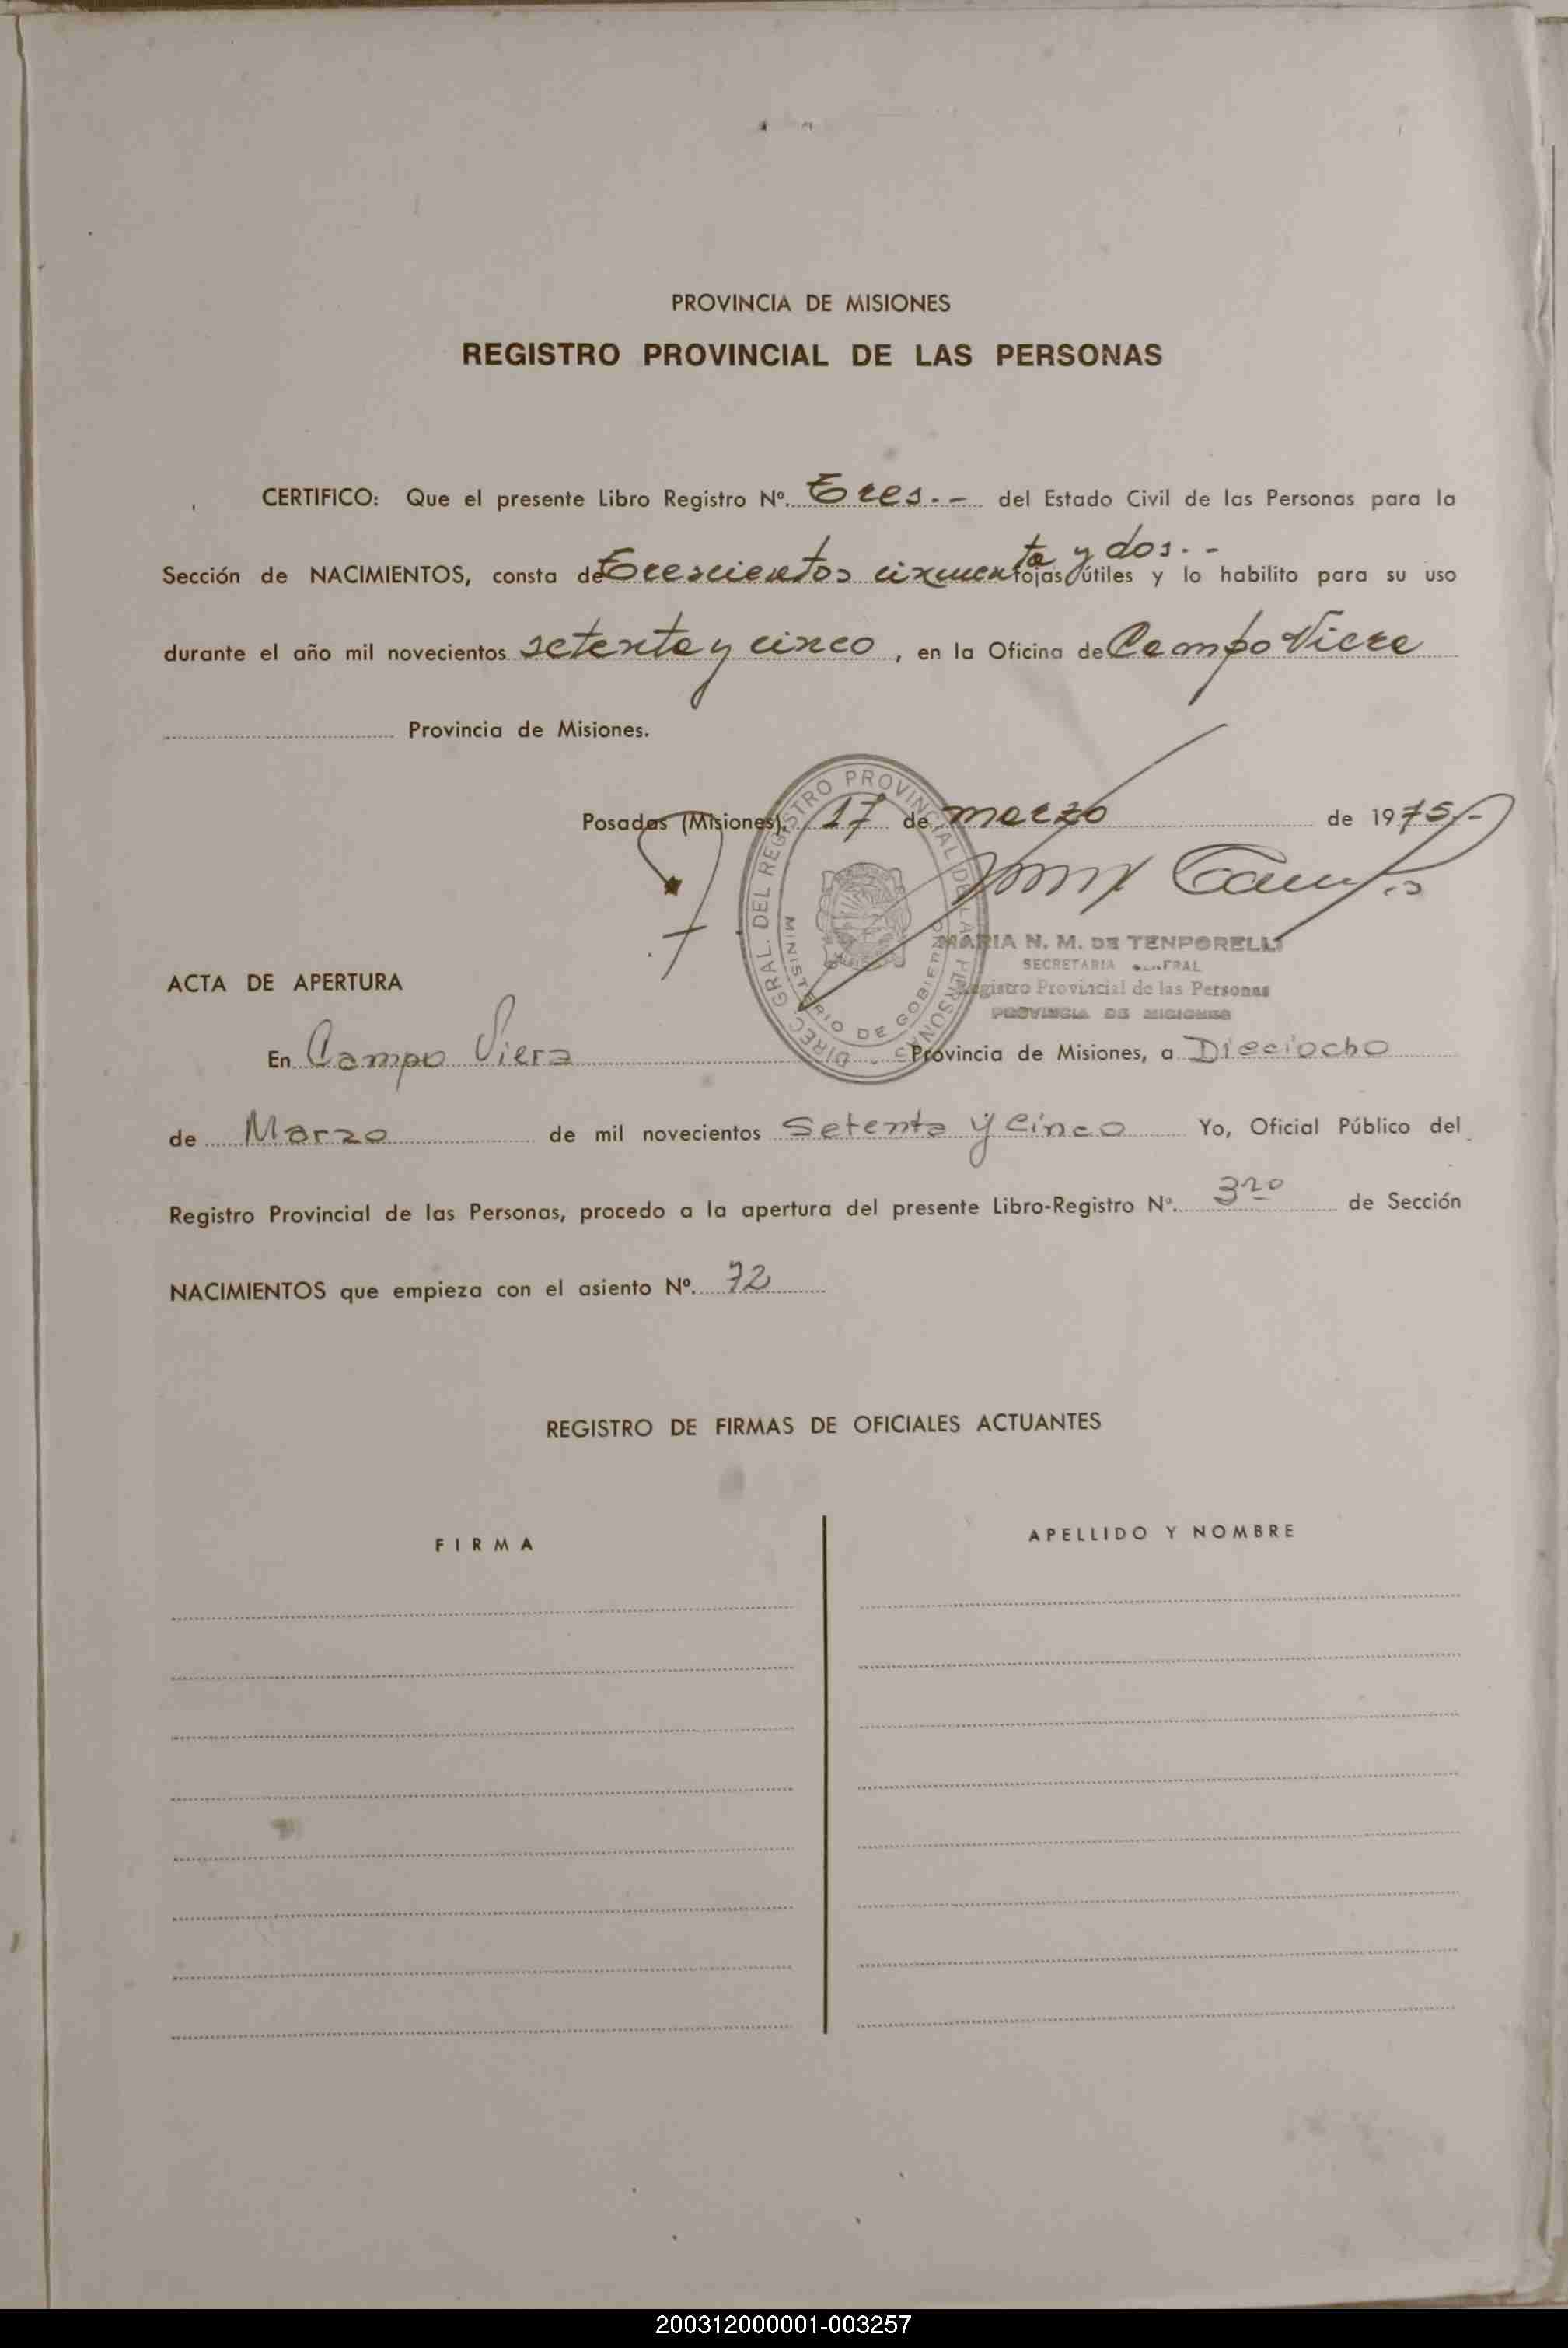 PROVINCIA DE MISIONES
REGISTRO PROVINCIAL DE LAS PERSONAS
CERTIFICO: Que el presente Libro Registro Nº. Tres.- del Estado Civil de las Personas para la
Sección de NACIMIENTOS, consta de Trescientos cincuenta y dos.- fojas útiles y lo habilito para su uso
durante el año mil novecientos setenta y cinco, en la Oficina de Campo Viera
Provincia de Misiones.
Posadas (Misiones), 17 de marzo de 1975.-
DIREC. GRAL. DEL REGISTRO PROVINCIAL DE LAS PERSONAS
MINISTERIO DE GOBIERNO
MARIA N. M. DE TENPORELLI
SECRETARIA GENERAL
Registro Provincial de las Personas
PROVINCIA DE MISIONES
ACTA DE APERTURA
En Campo Viera Provincia de Misiones, a Dieciocho
de Marzo de mil novecientos Setenta y Cinco Yo, Oficial Público del
Registro Provincial de las Personas, procedo a la apertura del presente Libro-Registro Nº. 3ro de Sección
NACIMIENTOS que empieza con el asiento Nº. 72
REGISTRO DE FIRMAS DE OFICIALES ACTUANTES
FIRMA
APELLIDO Y NOMBRE
200312000001-003257